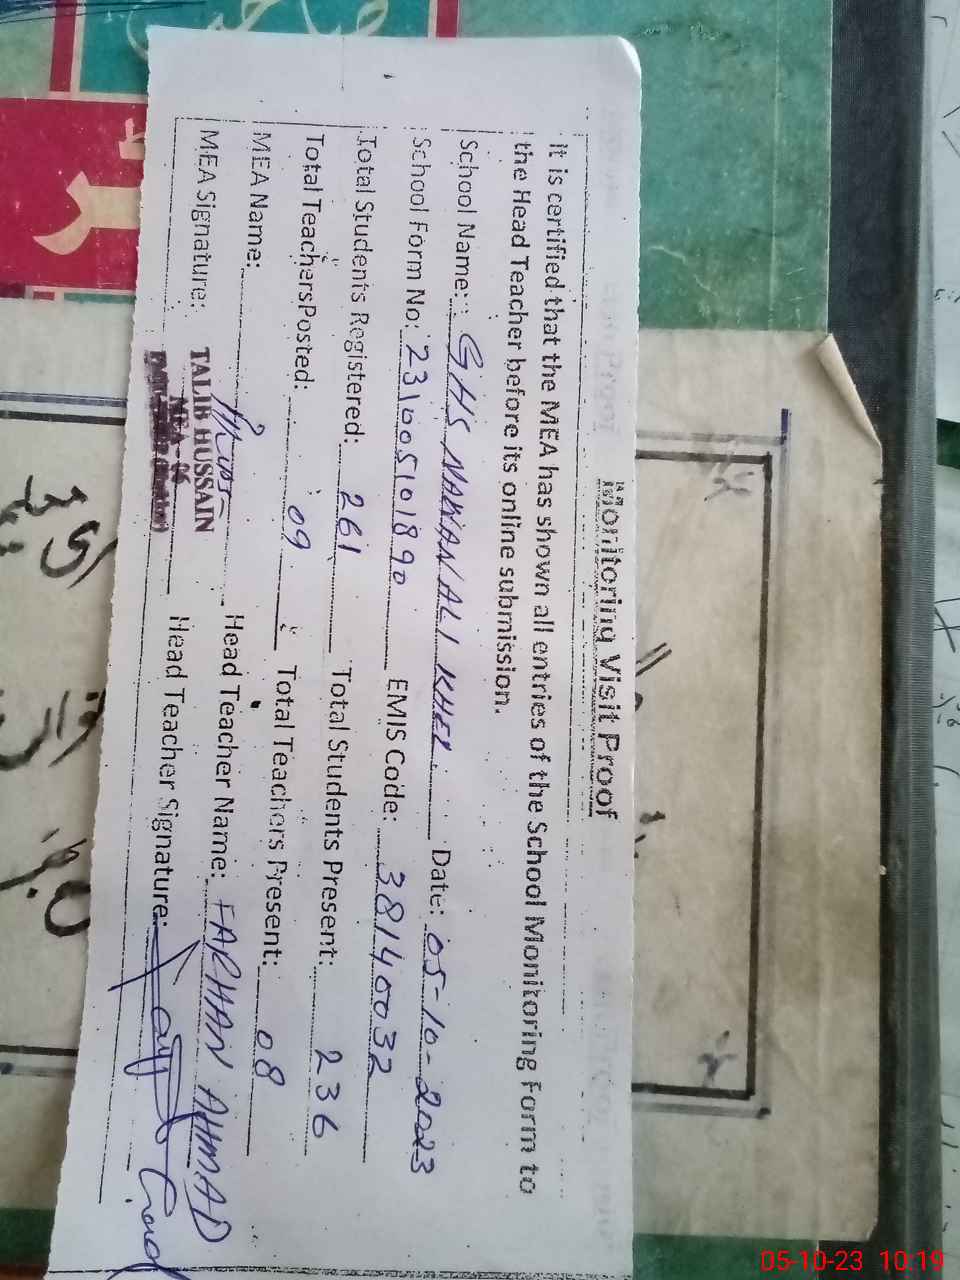 Monitoring Visit Proof
It is certified that the MEA has shown all entries of the School Monitoring Form to
the Head Teacher before its online submission.
School Name: GHS NAWAN ALI KHEL. Date: 05-10-2023
School Form No: 231005101890 EMIS Code: 38140032
Total Students Registered: 261 Total Students Present: 236
Total TeachersPosted: 09 Total Teachers Present: 08
MEA Name: Head Teacher Name: FARHAN AHMAD
MEA Signature: Head Teacher Signature:
TALIB HUSSAIN
MEA-06
05-10-23 10:19